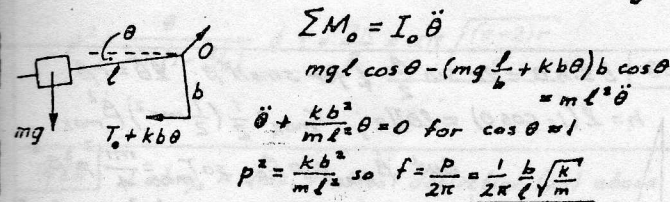 ΣM₀ = I₀ θ̈
θ
O
l
b
mg
T₀ + kbθ
mgl cos θ - (mg l/b + kbθ) b cos θ
= ml² θ̈
θ̈ + kb²/ml² θ = 0 for cos θ ≈ 1
p² = kb²/ml² so f = p/2π = 1/2π b/l √k/m